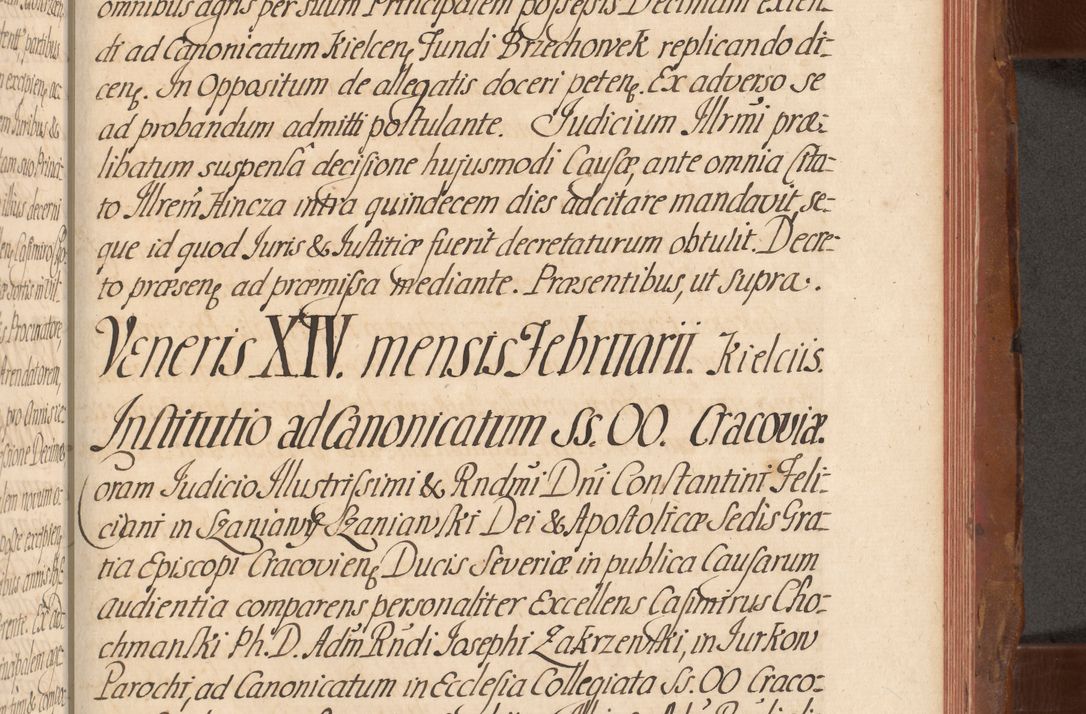 omnibus agris per suum Principalem possessis Decimam exten-
di ad Canonicatum Kielcen, Fundi Brzechowek replicando di-
cen. In Oppositum de allegatis doceri peten. Ex adverso se
ad probandum admitti postulante. Judicium Illrmi præ-
libatum suspensâ decisione hujusmodi Causæ, ante omnia Cita-
to Illrem Hincza intra quindecem dies adcitare mandavit, se-
que id quod Juris & Justitiæ fuerit decretaturum obtulit. Decre-
to præsen ad præmissa mediante. Præsentibus, ut supra.
Veneris XIV. mensis Februarii. Kielciis.
Institutio ad Canonicatum SS. OO. Cracoviæ.
Coram Judicio Illustrissimi & Rndmi Dni Constantini Feli-
ciani in Szaniawy Szaniawski Dei & Apostolicæ Sedis Gra-
tia Episcopi Cracovien, Ducis Severiæ in publica Causarum
audientia comparens personaliter Excellens Casimirus Cho-
chmanski Ph. D. Adm Rndi Josephi Zakrzewski, in Jurkow
Parochi, ad Canonicatum in Ecclesia Collegiata SS. OO Craco-